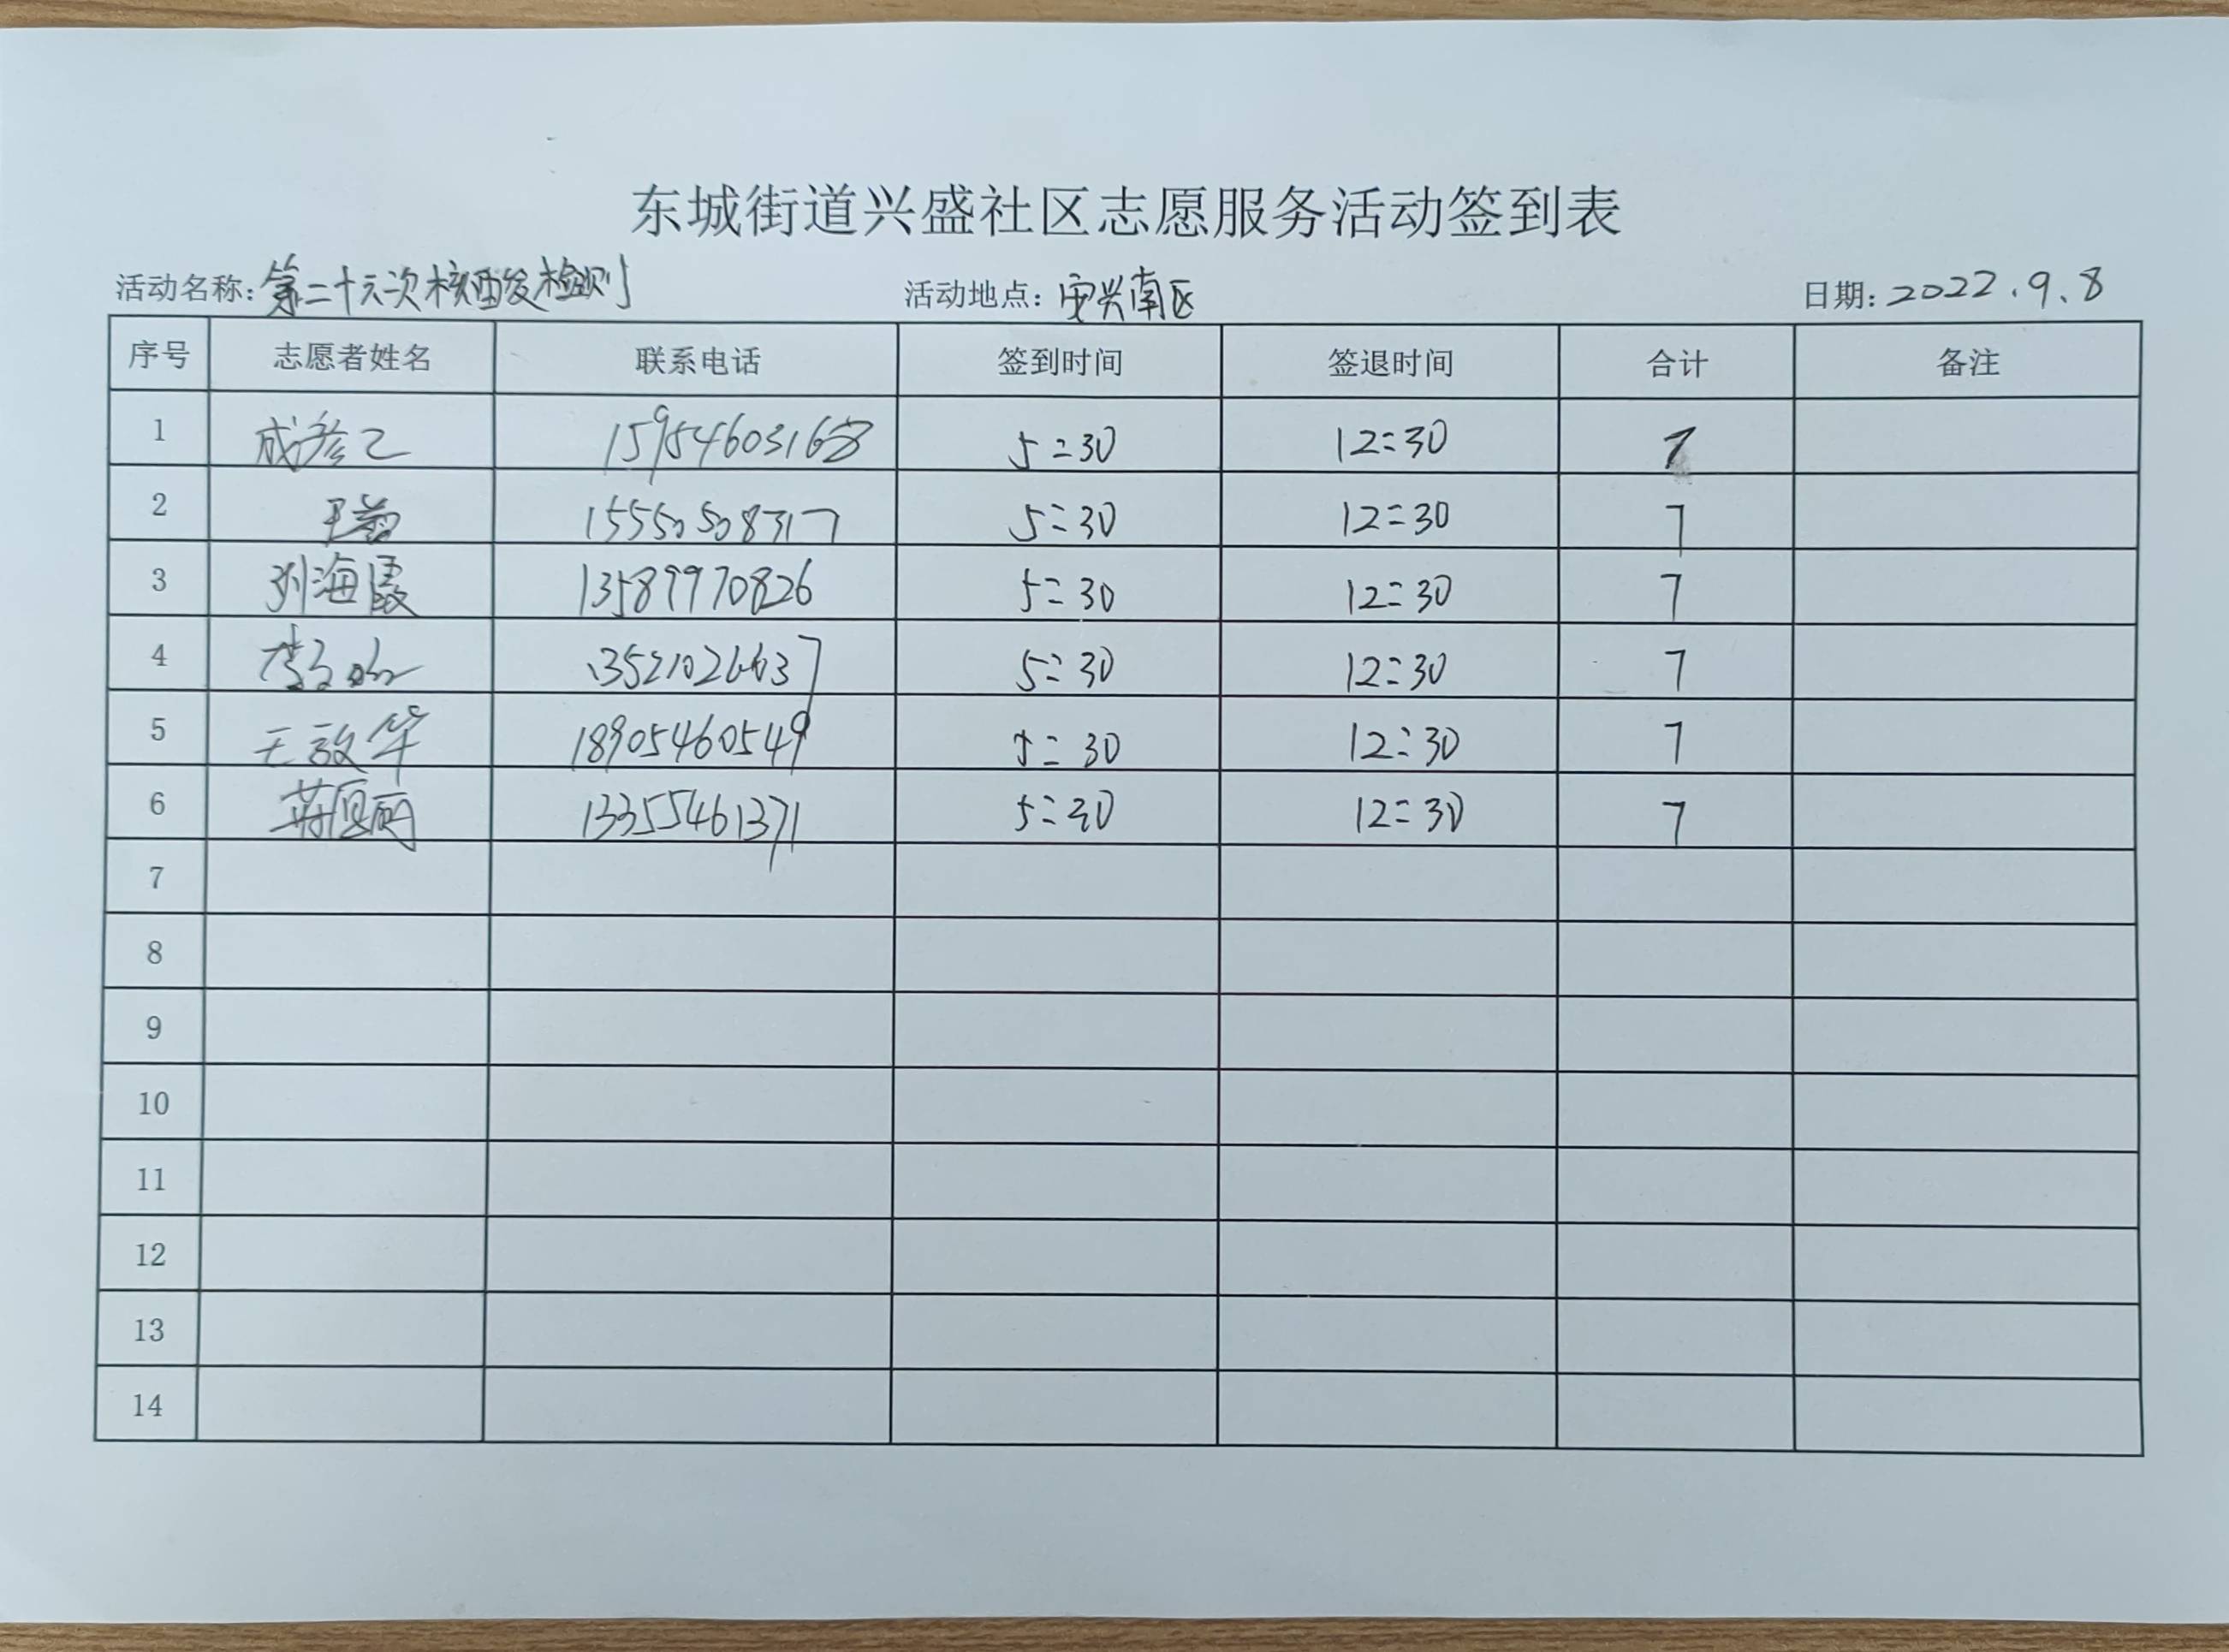 东城街道兴盛社区志愿服务活动签到表
活动名称：第二十六次核酸检测 活动地点：安兴南区 日期：2022.9.8
序号 志愿者姓名 联系电话 签到时间 签退时间 合计 备注
1 成彦乙 15954603168 5:30 12:30 7
2 15550508317 5:30 12:30 7
3 刘海霞 13589970826 5:30 12:30 7
4 13521026637 5:30 12:30 7
5 王敬华 18905460549 5:30 12:30 7
6 13355461371 5:30 12:30 7
7
8
9
10
11
12
13
14